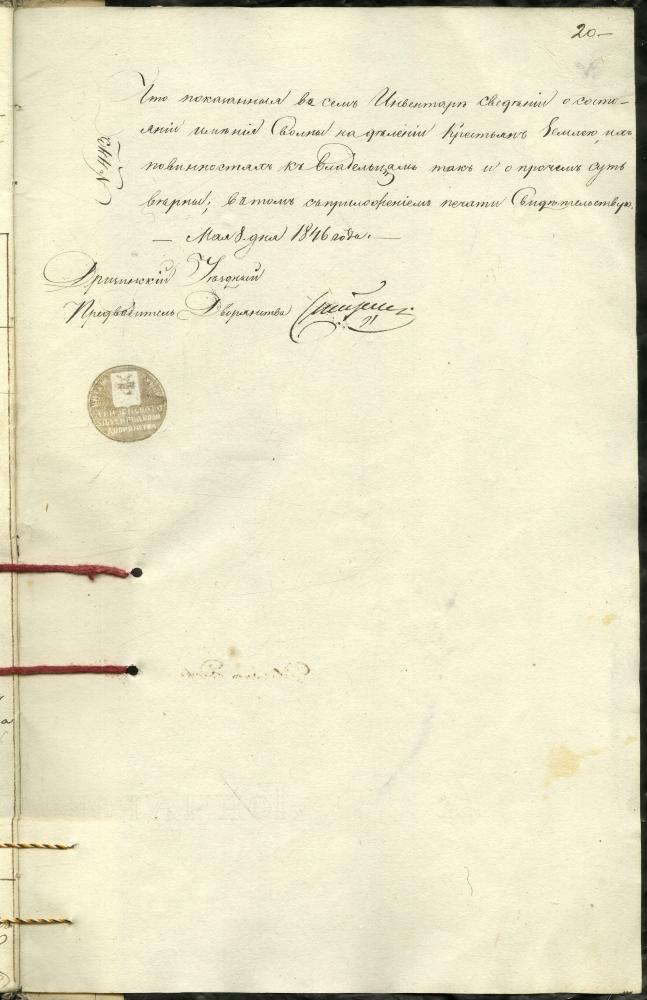 20
№ 443.
Что показанныя въ семъ Инвентарѣ сведѣнiи о состо-
янiи имѣнiя Волмы надѣленiи Крестьянъ Землею, ихъ
повинностяхъ къ Владѣльцамъ такъ и о прочемъ суть
вѣрны; въ томъ съ приложенiемъ печати Свидѣтельствую.
— Мая 8 дня 1846 года. —
Уѣздный
Предводитель Дворянства